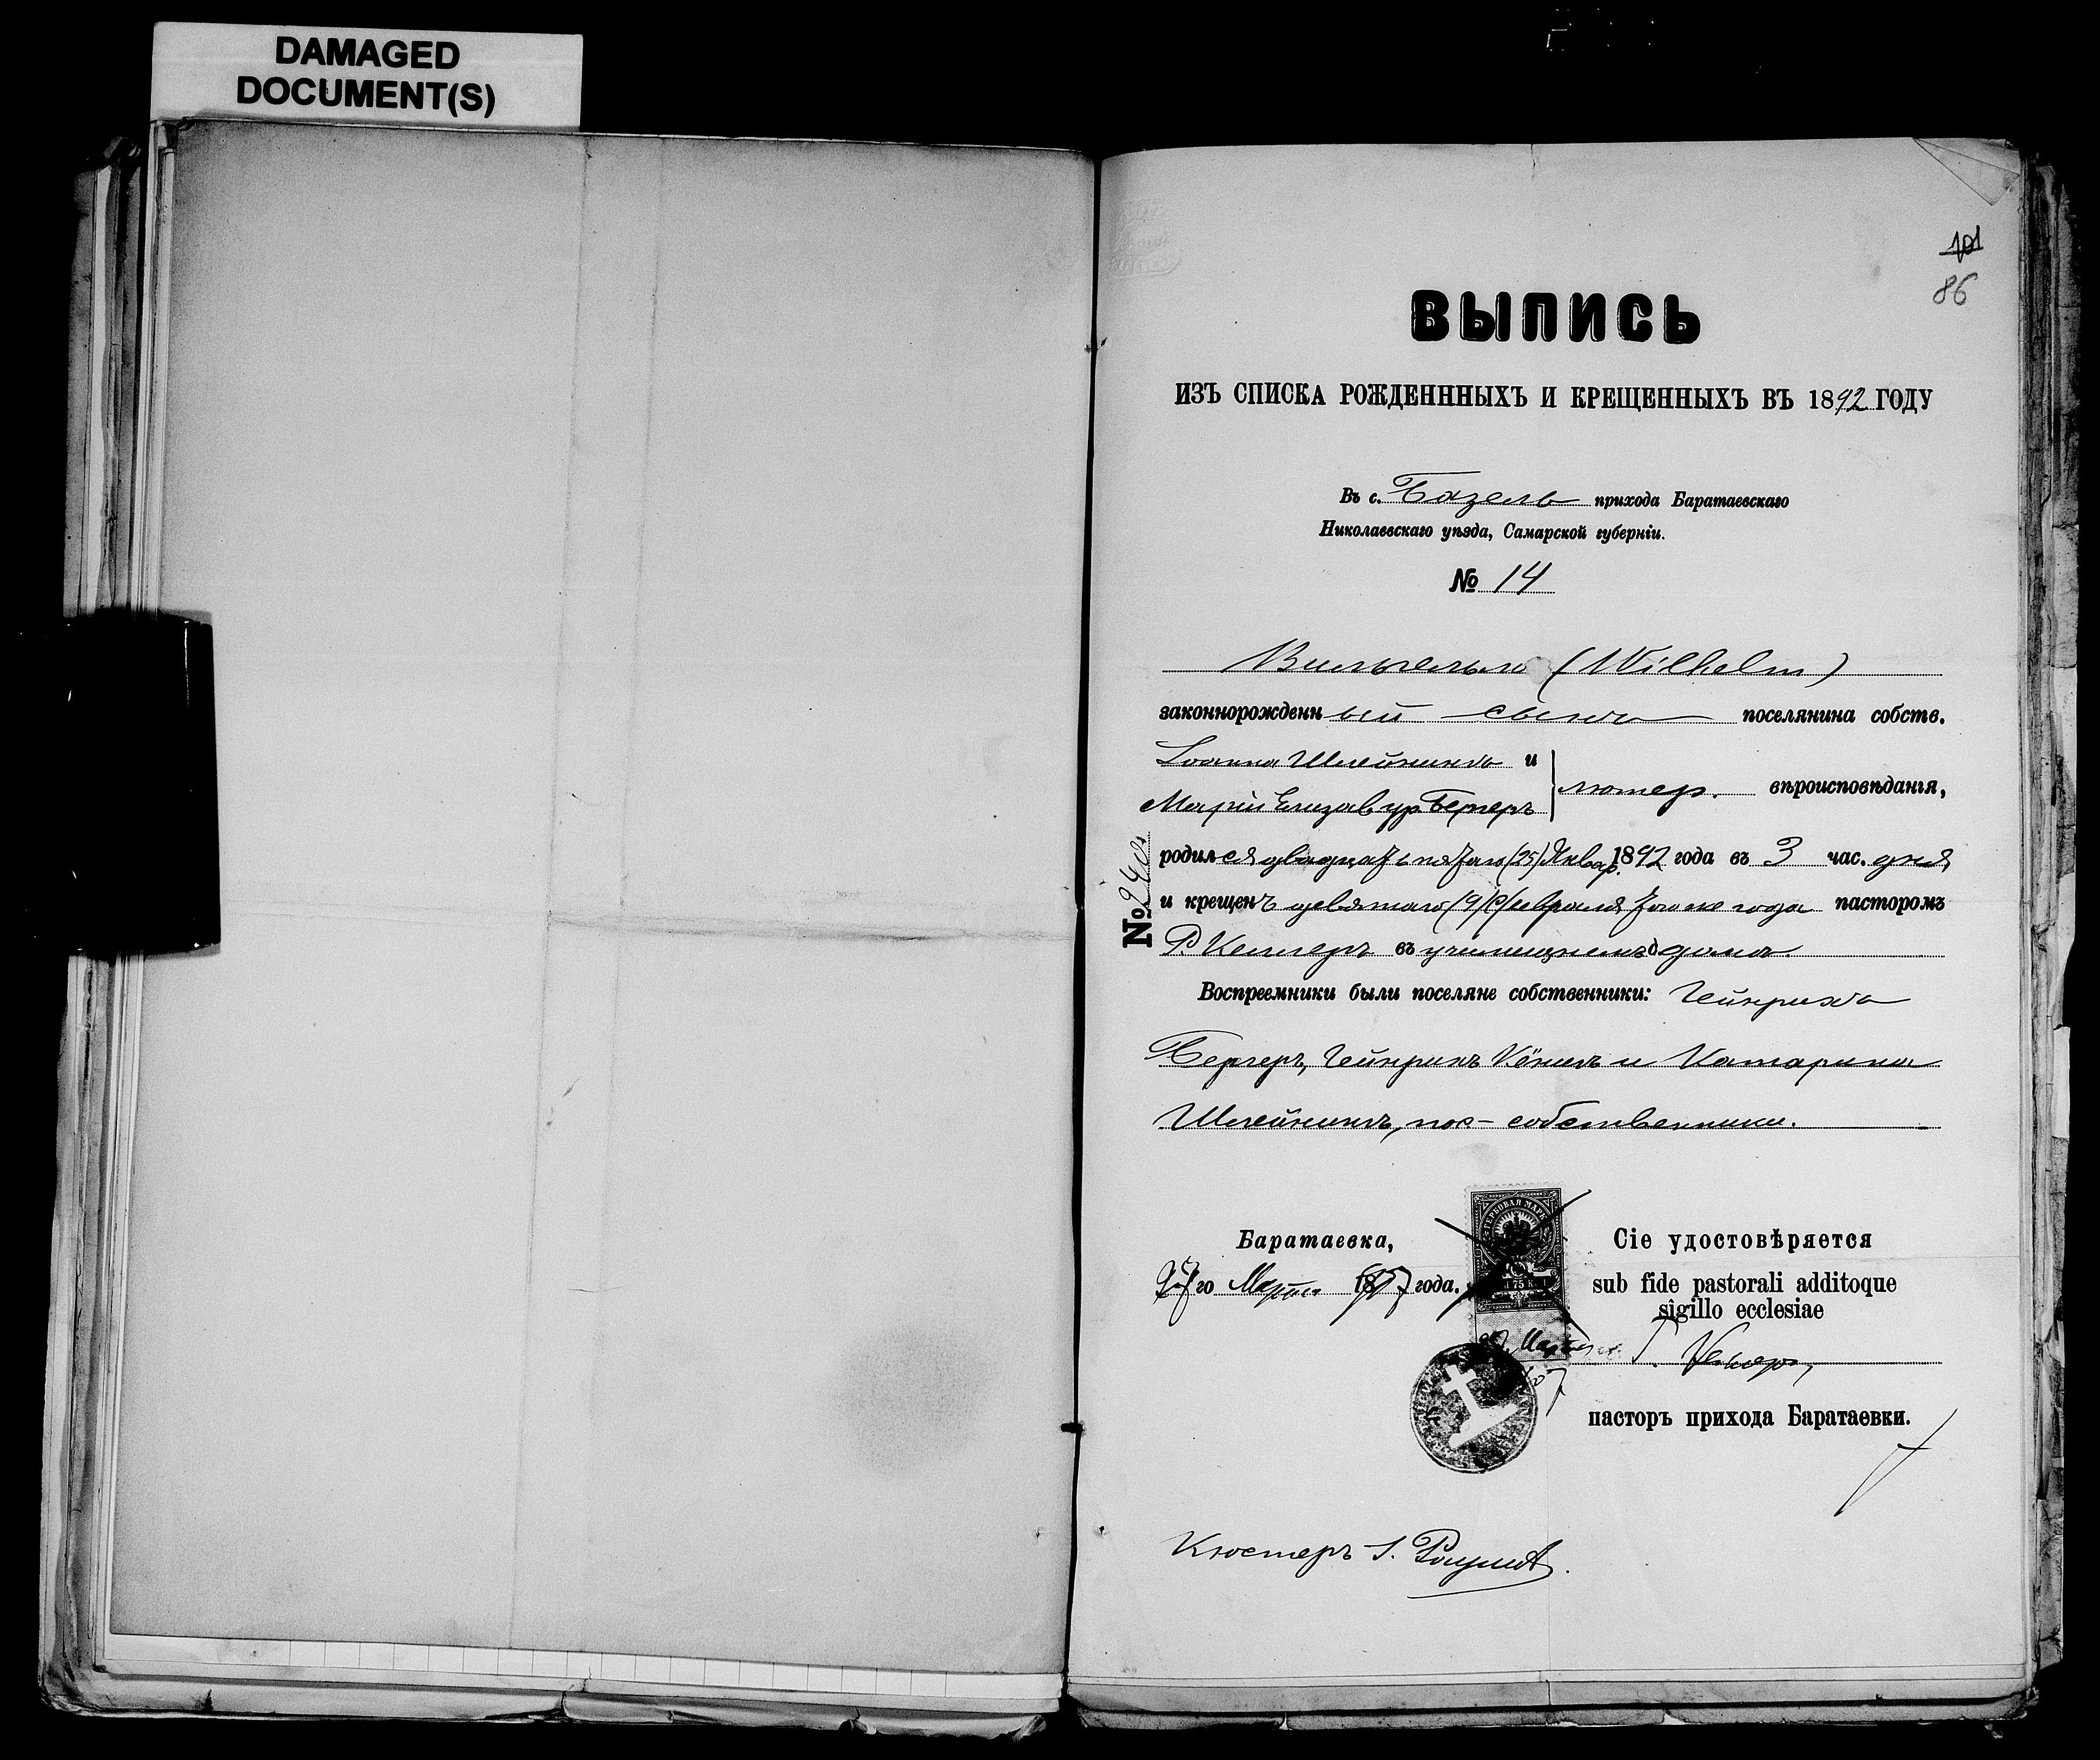 DAMAGED
DOCUMENT(S)
101
86
ВЫПИСЬ
ИЗЪ СПИСКА РОЖДЕНННЫХЪ И КРЕЩЕННЫХЪ ВЪ 1892 ГОДУ
Въ с. Базель прихода Баратаевскаго
Николаевскаго уѣзда, Самарской губерніи.
№ 14
Вильгельм (Wilhelm)
законнорожденный сынъ поселянина собств.
Іоанна Шлейнингъ и
лютер. вѣроисповѣданія,
Маріи Елизав ур. Бергеръ
родился двадцать пятаго (25) Январ. 1892 года въ 3 час. дня
и крещенъ девятаго (9) февраля того же года пасторомъ
Р. Келлеръ въ училищномъ домѣ.
№ 240
Воспреемники были поселяне собственники: Гейнрихъ
Бергеръ, Гейнрихъ Кёнигъ и Катарина
Шлейнингъ, пос- собственники.
Баратаевка,
Сіе удостовѣряется
27 го Марта 1897 года.
sub fide pastorali additoque
sigillo ecclesiae
ГЕРБОВАЯ МАРКА
75 К.
пасторъ прихода Баратаевки.
Кюстеръ